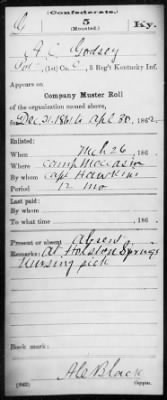 (Confederate.)
5
(Mounted.)
Ky.
A. C. Godsey
Pvt, (1st) Co. C, 5 Reg't Kentucky Inf.
Appears on
Company Muster Roll
of the organization named above,
for Dec 31, 1861 to Apl 30, 1862.
Enlisted:
When Mch 26, 186
Where Camp Moccasin
By whom Capt Hawkins
Period 12 mo
Last paid:
By whom
To what time , 186
Present or absent Absent
Remarks: At Holston Springs
nursing sick
(642)
Copyist.